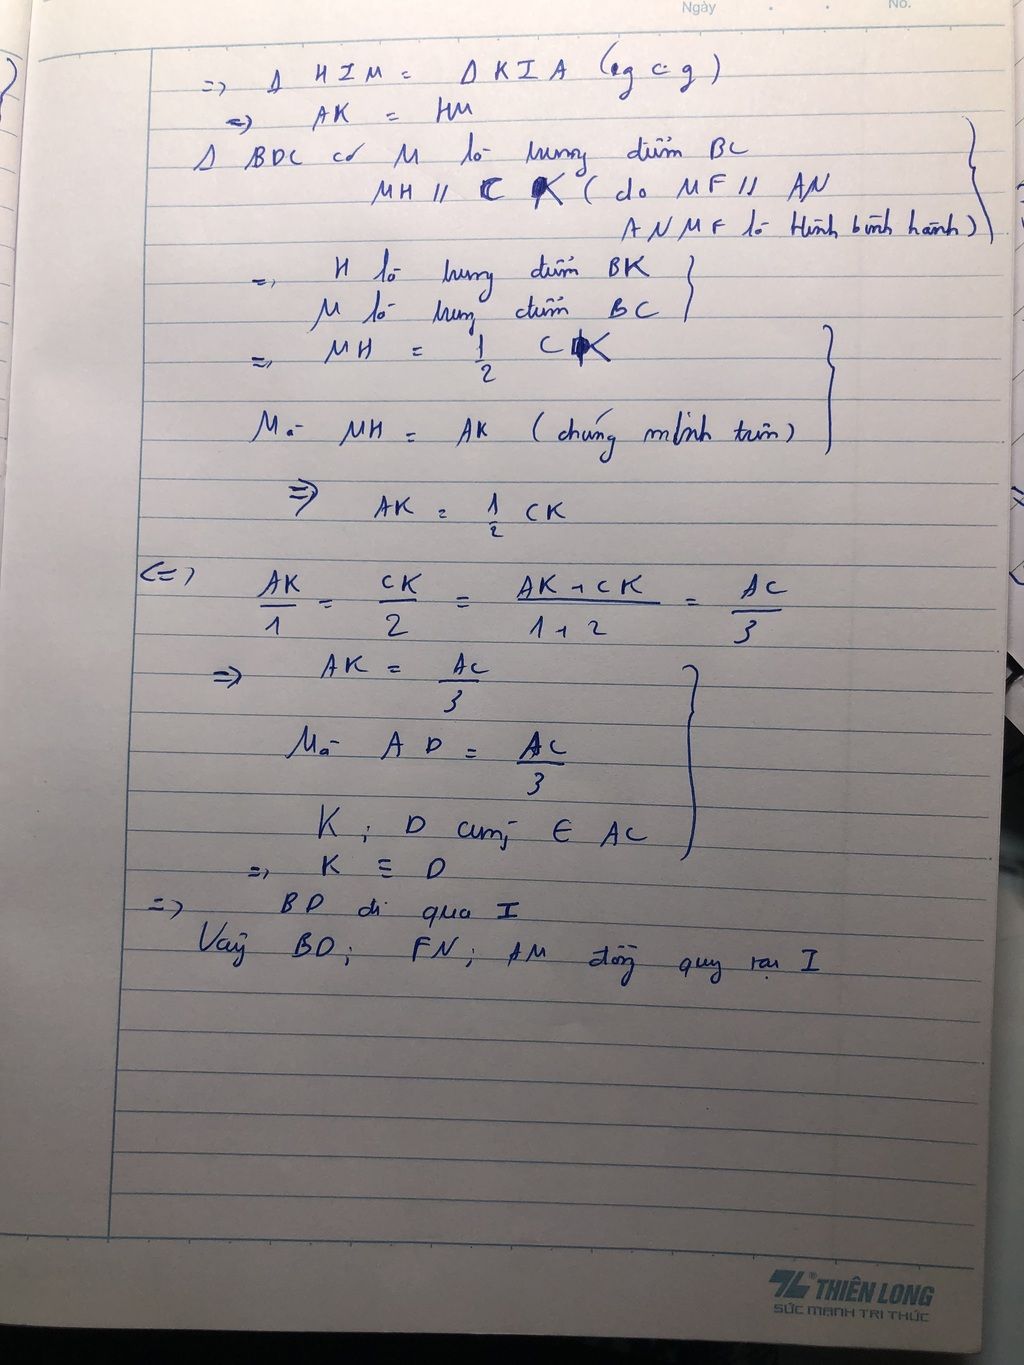 Ngày . . No.
=> Δ HIM = Δ KIA (g c g)
=> AK = HM
Δ BDC có M là trung điểm BC
MH // CK (do MF // AN
ANMF là Hình bình hành)
=> H là trung điểm BK
M là trung điểm BC
=> MH = 1/2 CK
Mà MH = AK (chứng minh trên)
=> AK = 1/2 CK
<=> AK/1 = CK/2 = AK + CK/1 + 2 = AC/3
=> AK = AC/3
Mà AD = AC/3
K; D cùng ∈ AC
=> K ≡ D
=> BD đi qua I
Vậy BD; FN; AM đồng quy tại I
TL THIÊN LONG
SỨC MẠNH TRI THỨC